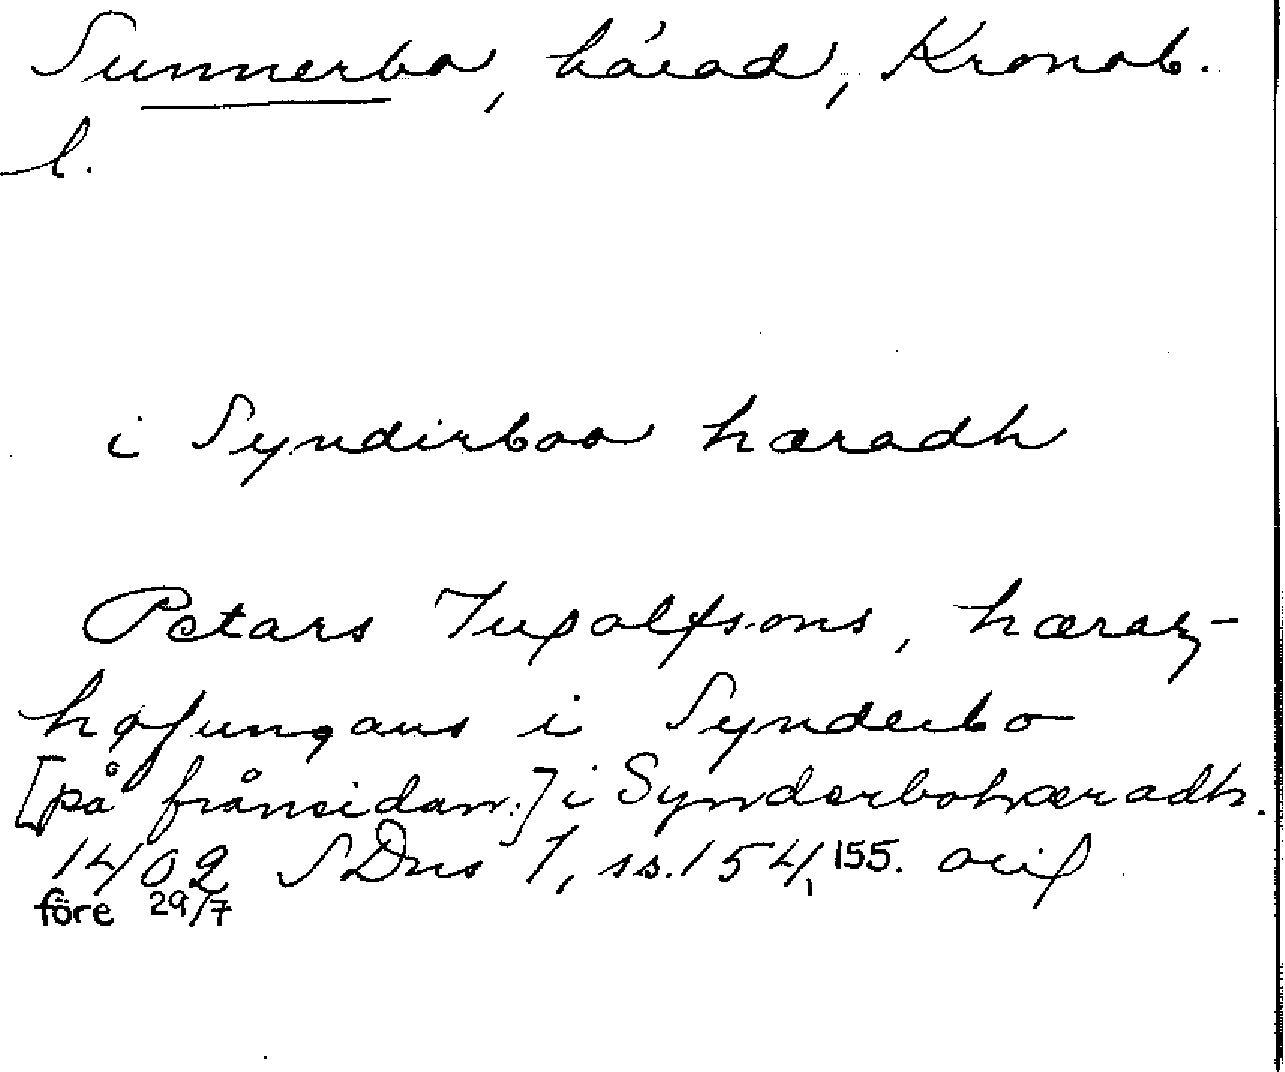 Sunnerbo, härad, Kronob.
l.
i Syndirboo hæradh
Petars Jupolfsons, hæraz-
høfungans i Synderbo
[på frånsidan:] i Synderbohæradh.
1402 SDns 1, ss. 154, 155. orig
före 29/7